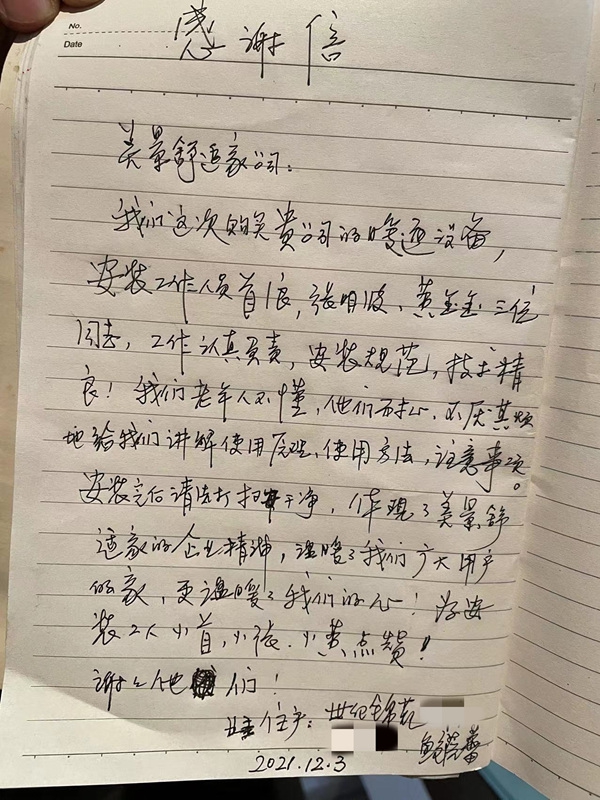 No.
Date
感谢信
美景舒适家公司:
我们这次购买贵公司的暖通设备,
安装工作人员首浪,张明波、黄金金三位
同志,工作认真负责,安装规范,技术精
良!我们老年人不懂,他们耐心、不厌其烦
地给我们讲解使用原理、使用方法,注意事项。
安装完后清洁打扫干净,体现了美景舒
适家的企业精神,温暖了我们广大用户
的家,更温暖了我们的心!为安
装工人小首,小张、小黄点赞!
谢谢他们!
住户:世纪锦苑
2021.12.3